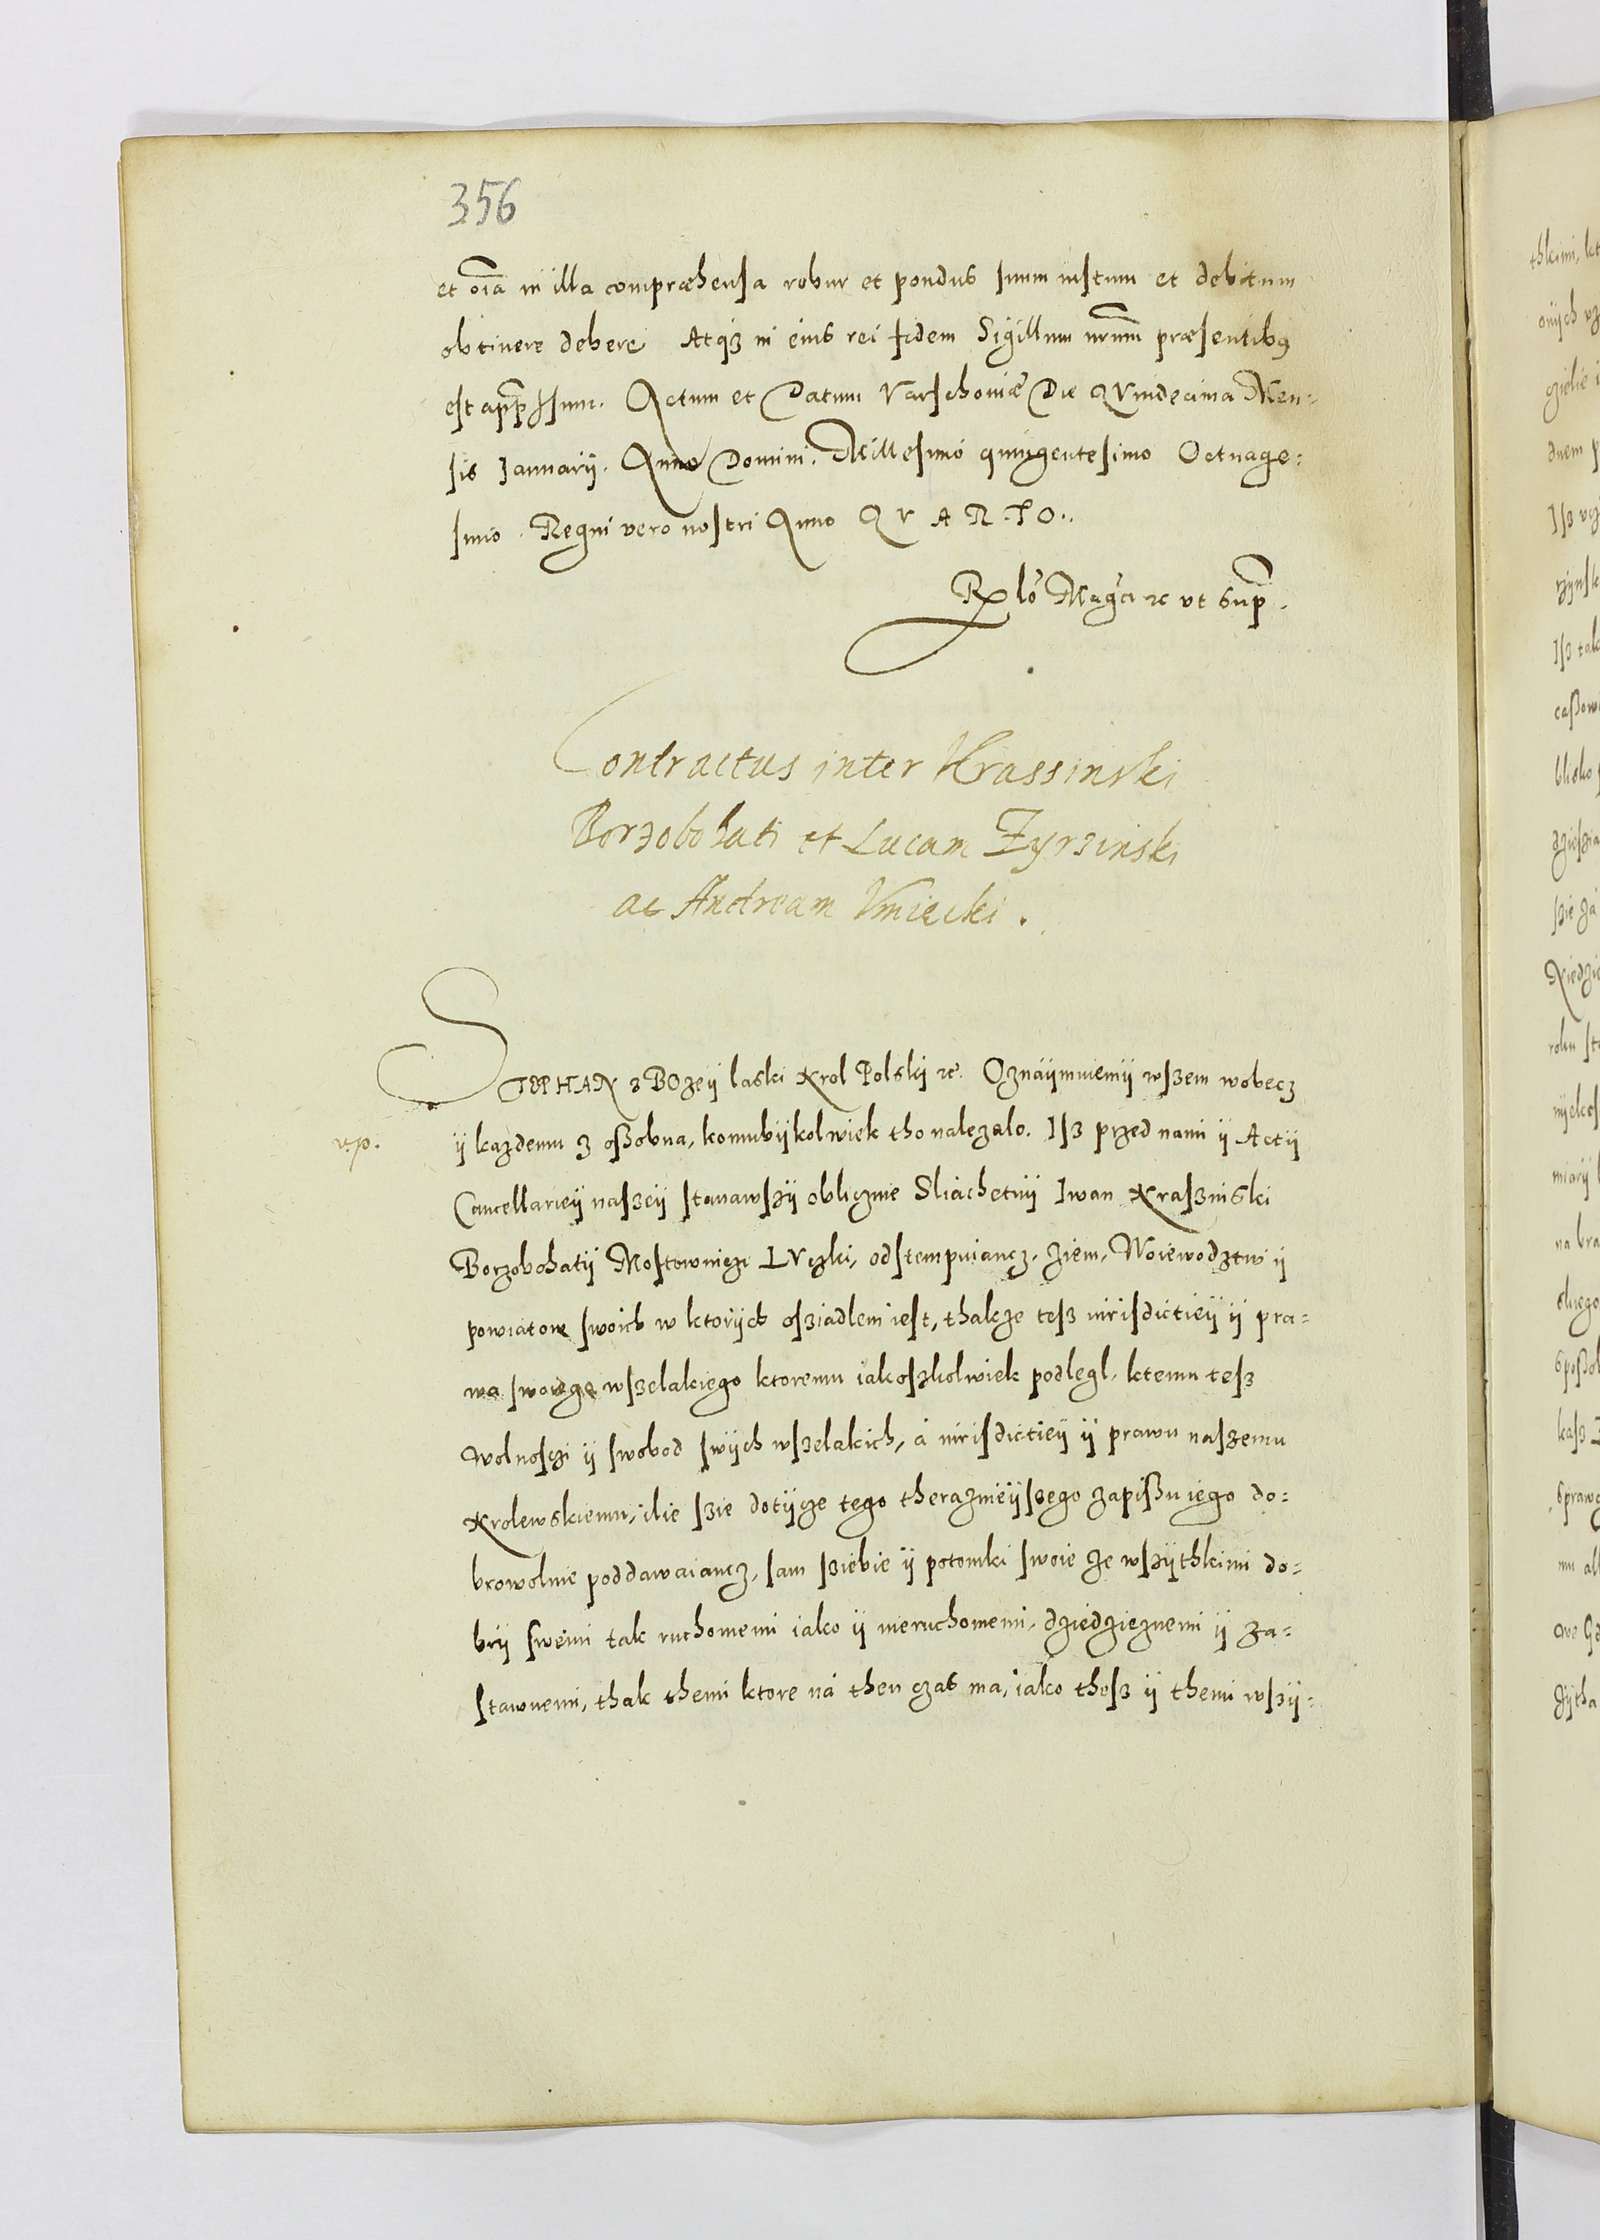 356
et oia in illa compræhensa robur et pondus suum iustum et debitum
obtinere debere. Atqȝ in eius rei fidem Sigillum nrum præsentibus
est appssum. Actum et Datum Varschoviæ Die QVindecima Men:
sis Januarij. Anno Domini. Millesimo quingentesimo Octuage:
simo. Regni vero nostri Anno QVARTO.
Rlo Magci ut sup.
Contractus inter Krassinski
Borzobohati et Lucam Zyrzinski
ac Andream Vmięcki.
STEPHAN z Bozeÿ laski Krol Polskÿ etc. Oznaÿmuiemÿ wszem wobecz
ÿ kazdemu z ossobna, komubÿkolwiek tho nalezalo. Isz przed nami ÿ Actÿ
v.p.
Cancellarieÿ naszeÿ stanawszÿ oblicznie Sliachetnÿ Iwan Kraszniski
Borzobohatÿ Mostowniczi LVczki, odstempuiancz, ziem, Woiewodztw ÿ
powiatow swoich w ktorÿch osziadlem iest, thakze tesz iurisdictieÿ ÿ pra-
wa swoiego wszelakiego ktoremu iakoszkolwiek podlegl, ktemu tesz
wolnoszi ÿ swobod swÿch wszelakich, a iurisdictieÿ ÿ prawu naszemu
Krolewskiemu, ilie szie dotÿcze tego therazniejszego zapissu iego do-
browolnie poddawaiancz, sam sziebie ÿ potomki swoie ze wszÿthkimi do-
brÿ swemi tak ruchomemi iako ÿ nieruchomemi, dziedzicznemi ÿ za-
stawnemi, thak themi ktore na then czas ma, iako thesz ÿ themi wszÿ-